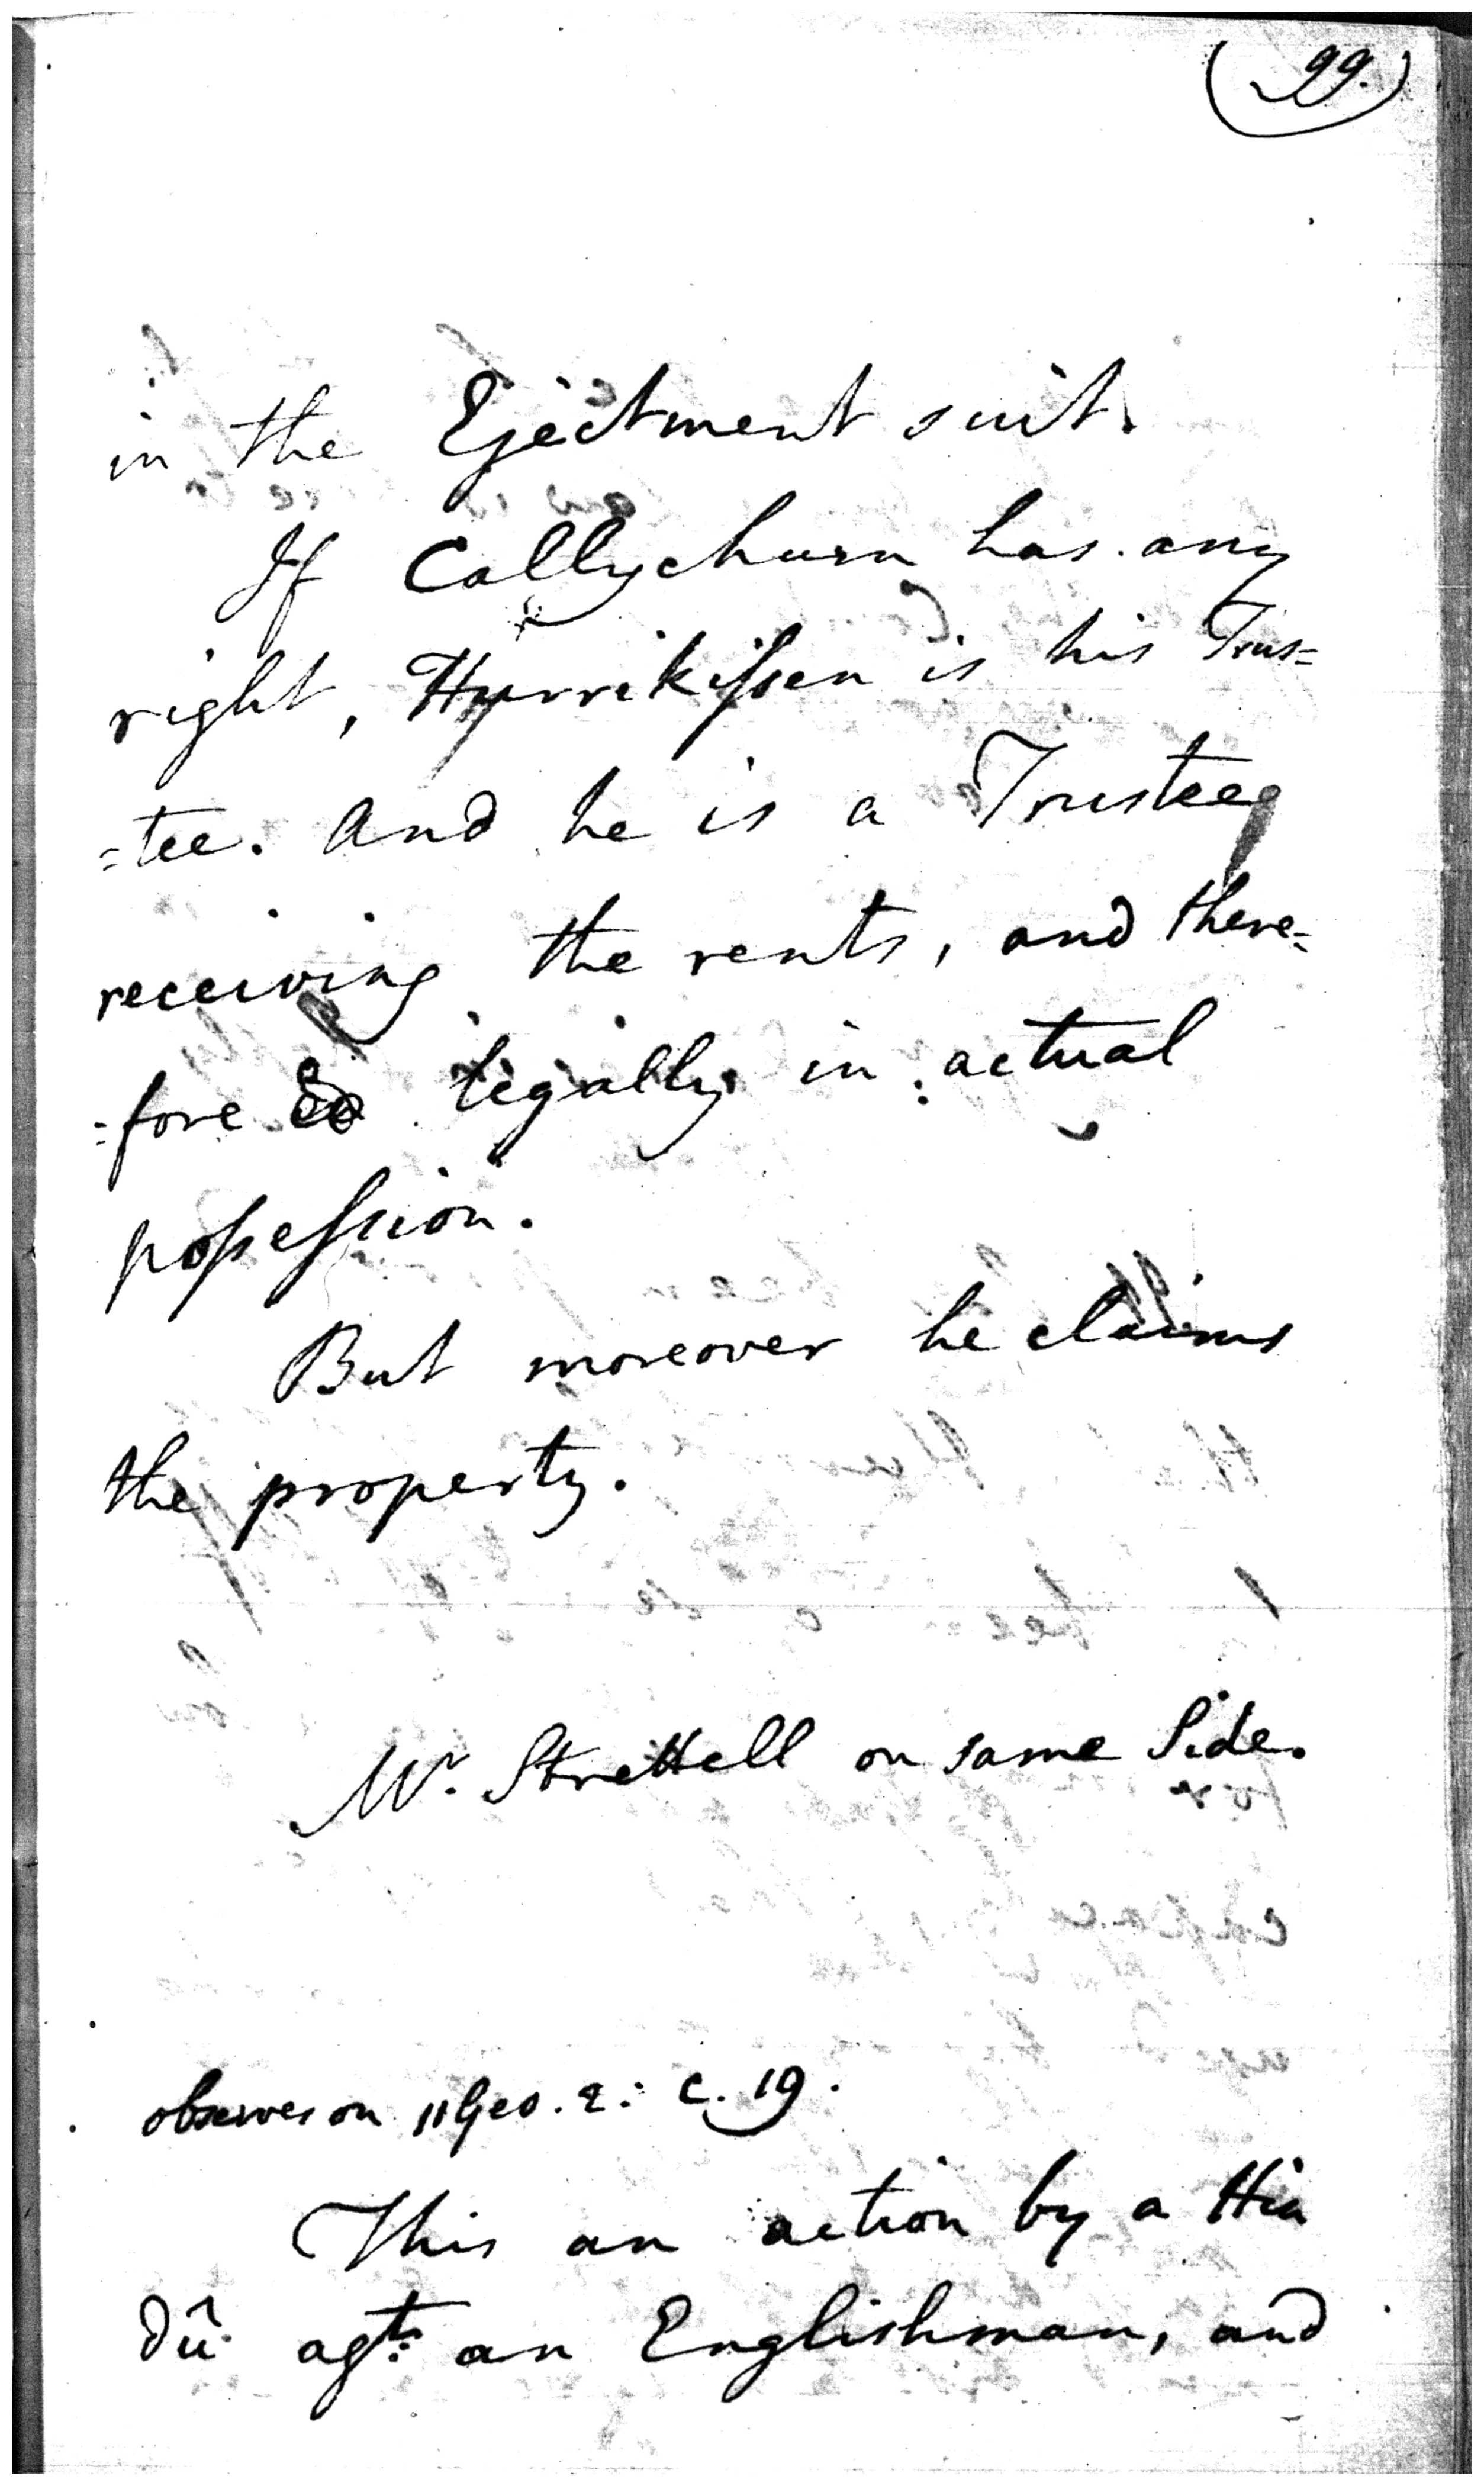 (99.)
in the Ejectment suit.
If Callychurn has any
right, Hurrikissen is his Trus=
=tee. And he is a Trustee
receiving the rents, and there=
=fore legally in actual
possession.
But moreover he claims
the property.
Mr. Strettell on same Side.
observes on 11 Geo. 2. c. 19.
This an action by a Hin
dû agt. an Englishman, and